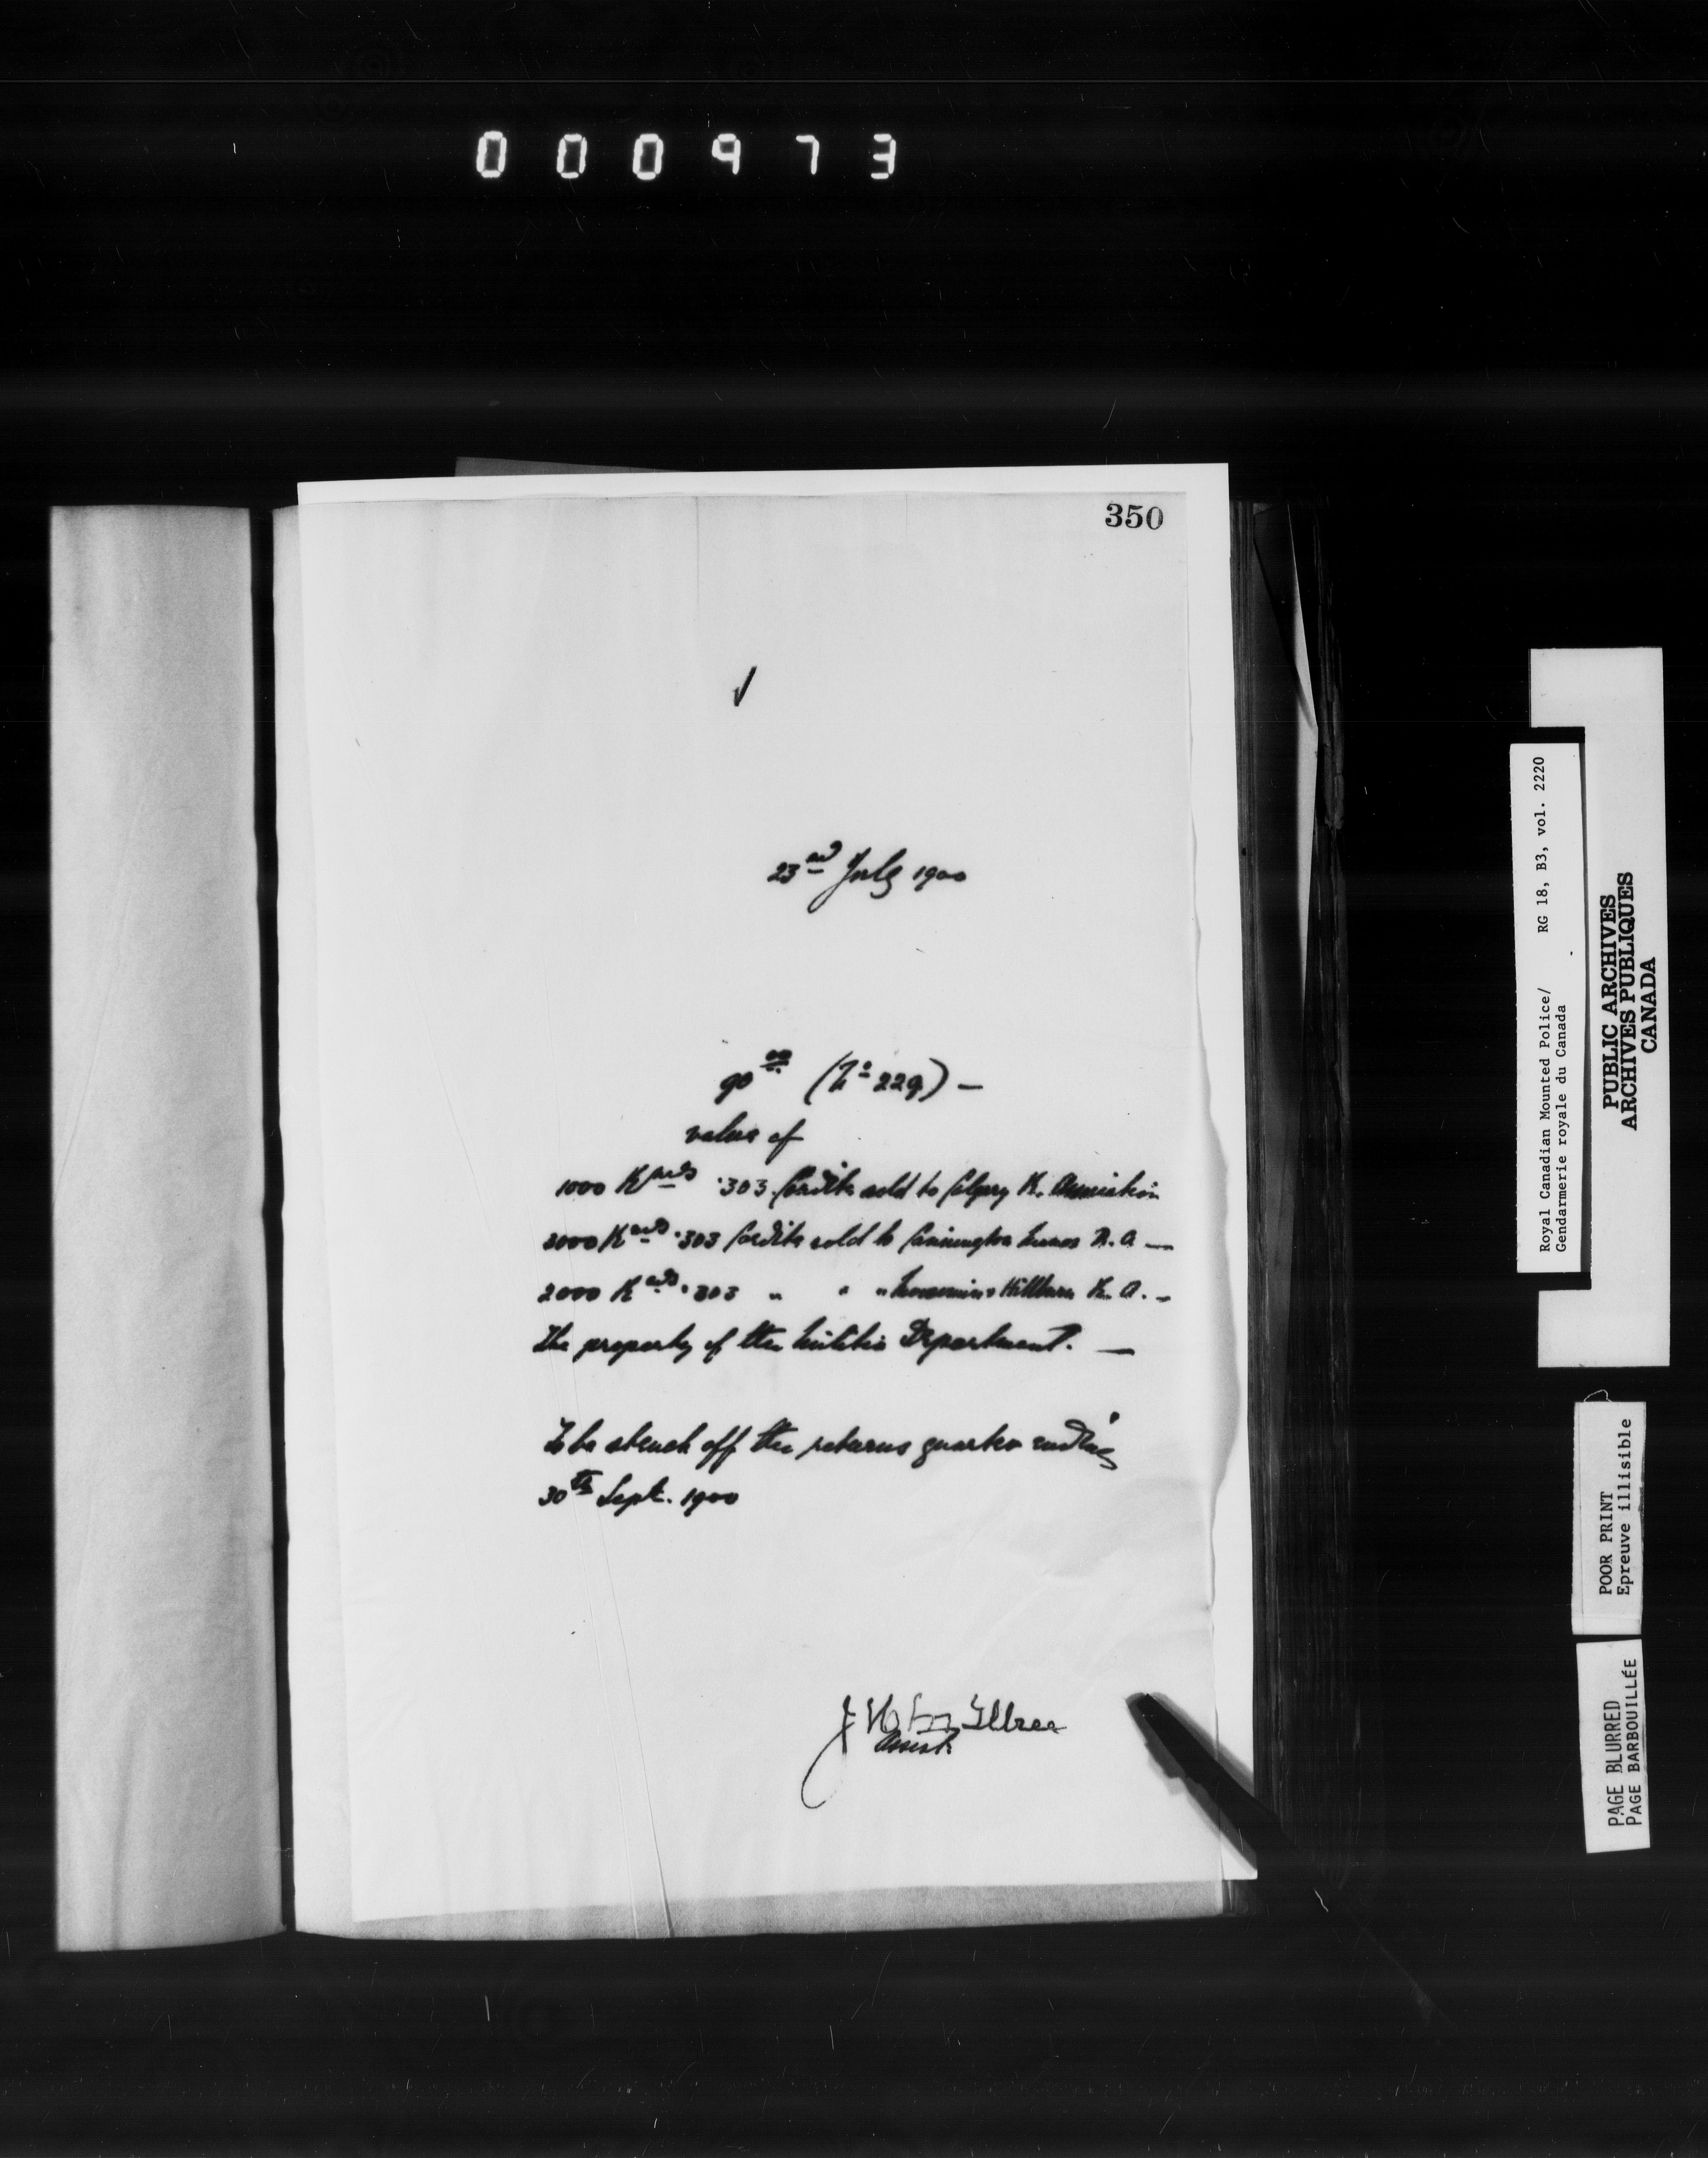 0 0 0 9 7 3
350
23rd July 1900
90 00 (No 229) —
value of
1000 Rnds .303 Cordite sold to Calgary R. Association
2000 Rnds .303 Cordite sold to Cannington Manor R. A —
2000 Rnds .303 " " " Moosomin R. A. —
The property of the Militia Department. —
To be struck off the returns quarter ending
30th Sept. 1900
Assist.
Royal Canadian Mounted Police/ RG 18, B3, vol. 2220
Gendarmerie royale du Canada
PUBLIC ARCHIVES
ARCHIVES PUBLIQUES
CANADA
POOR PRINT
Epreuve illisible
PAGE BLURRED
PAGE BARBOUILLÉE